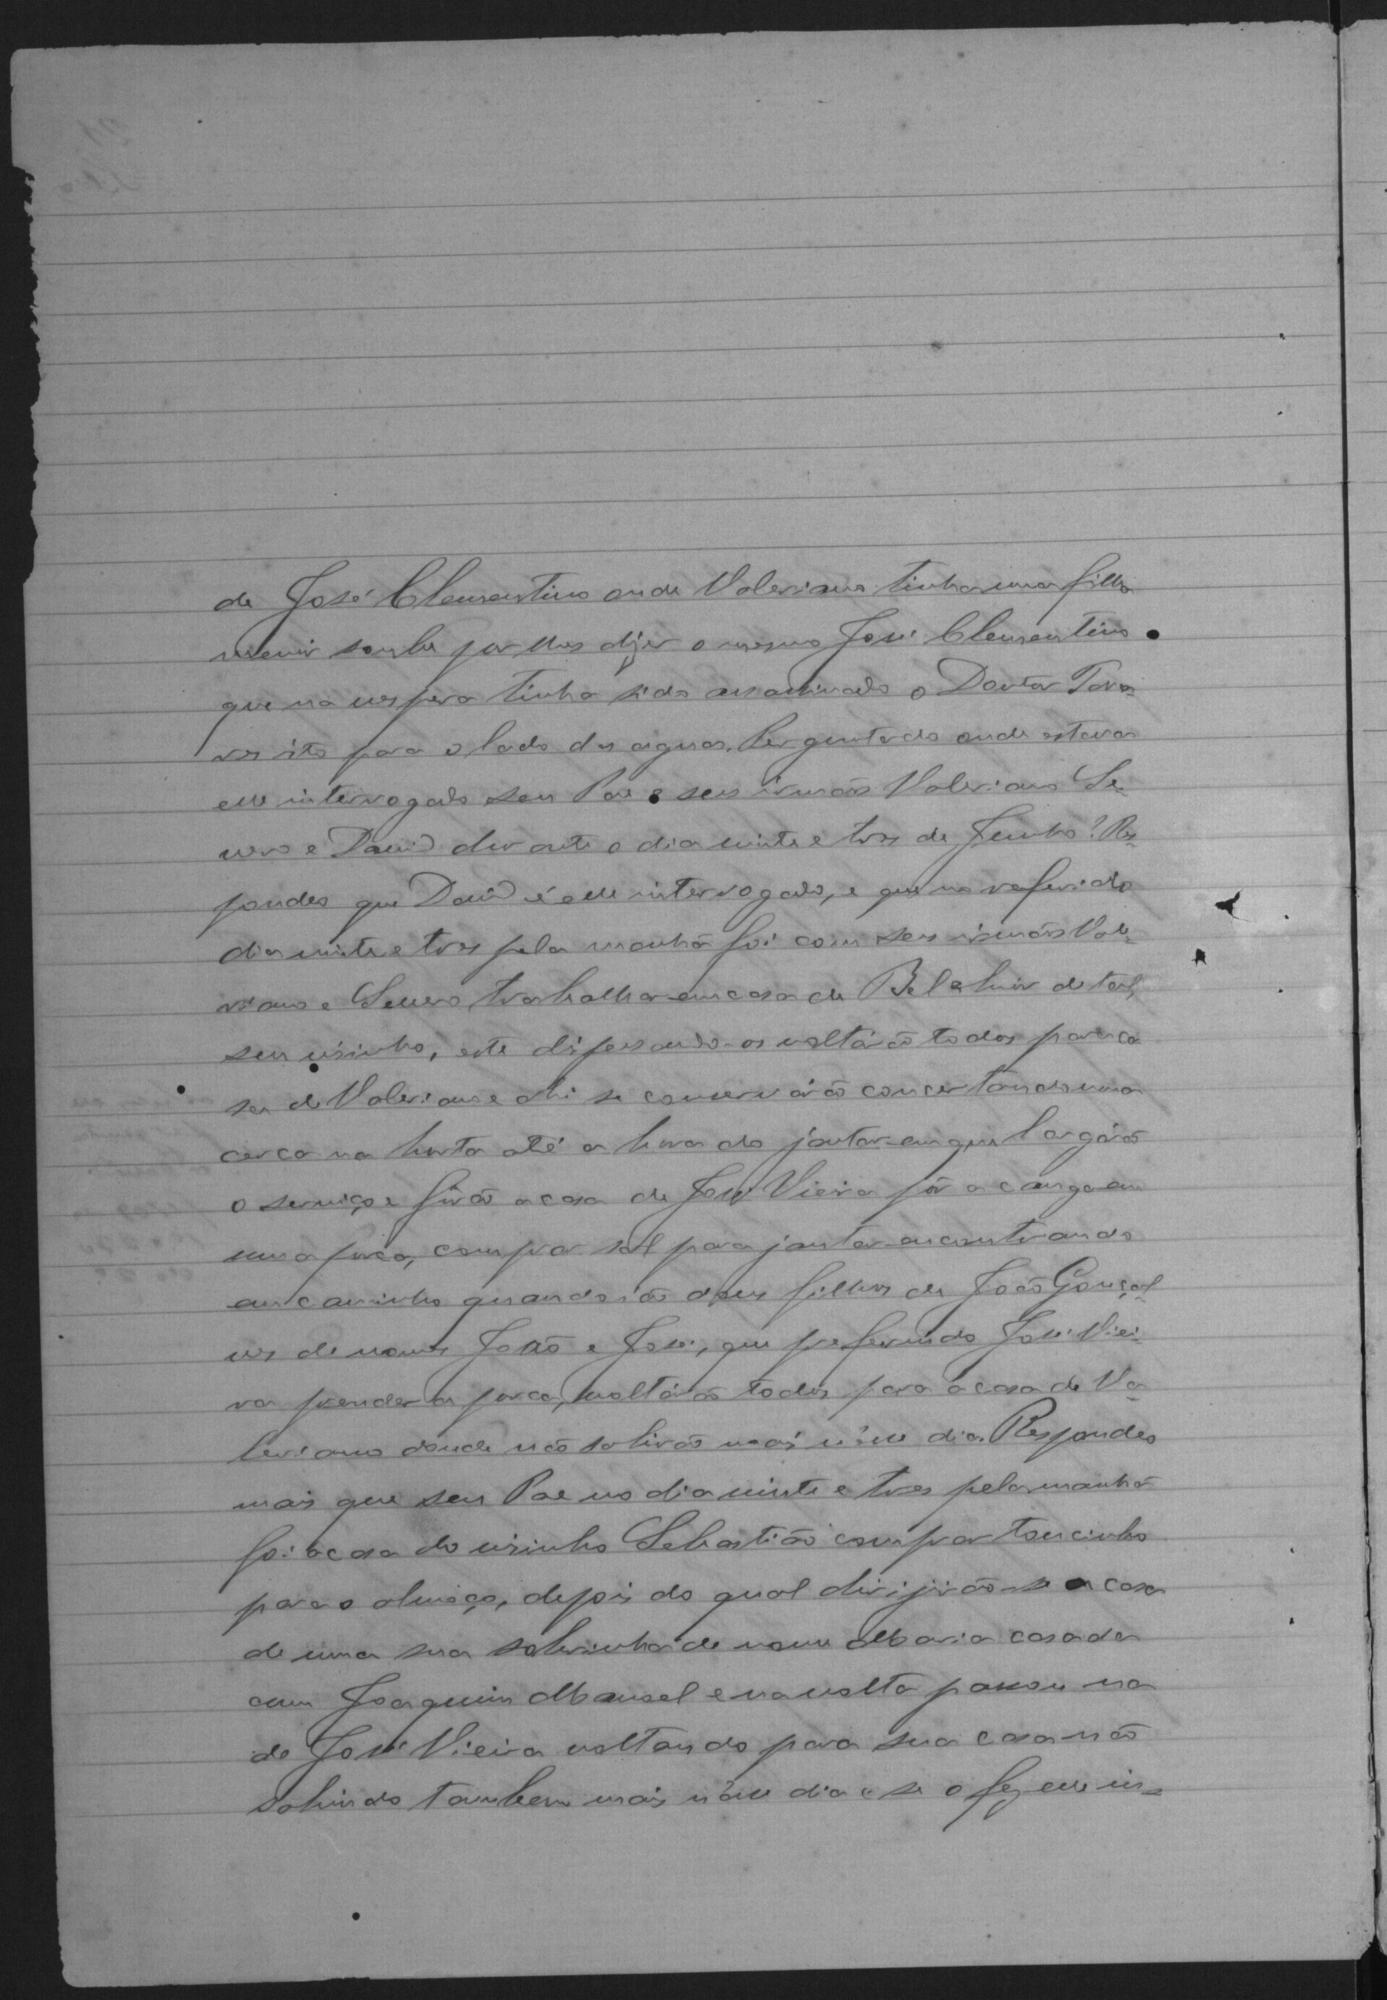 de José Clementino onde Valeriano tinha uma filha
menor soube por lhes dizer o mesmo José Clementino
que na vespera tinha sido assassinado o Doutor Tava-
res isto para o lado das aguas. Perguntado onde estava
elle interrogado seu Pae e seus irmãos Valeriano Se-
vero e David durante o dia vinte e tres de Junho? Res-
pondeo que David é elle interrogado, e que no referido
dia vinte e tres pela manhã foi com seus irmãos Vale-
riano e Severo trabalhar em casa de Belchior de tal,
seu visinho, este dispensando-os voltárão todos para ca
sa de Valeriano e ahi se conservárão concertando uma
cerca na horta até a hora do jantar em que largárão
o serviço e fôrão a casa de José Vieira pôr a canga em
uma porca, comprar sal para jantar encontrando
em caminho quando ião dous filhos de João Gonçal-
ves de nomes João e José, que preferindo José Viei-
ra prender a porca, voltárão todos para a casa de Va-
leriano donde não sahirão mais n'esse dia. Respondeo
mais que seu Pae no dia vinte e tres pela manhã
foi a casa do visinho Sebastião comprar toucinho
para o almoço, depois do qual dirijirão-se a casa
de uma sua sobrinha de nome Maria casada
com Joaquim Manoel e na volta passou na
de José Vieira voltando para sua casa não
sahindo tambem mais n'esse dia e se o fez elle in-